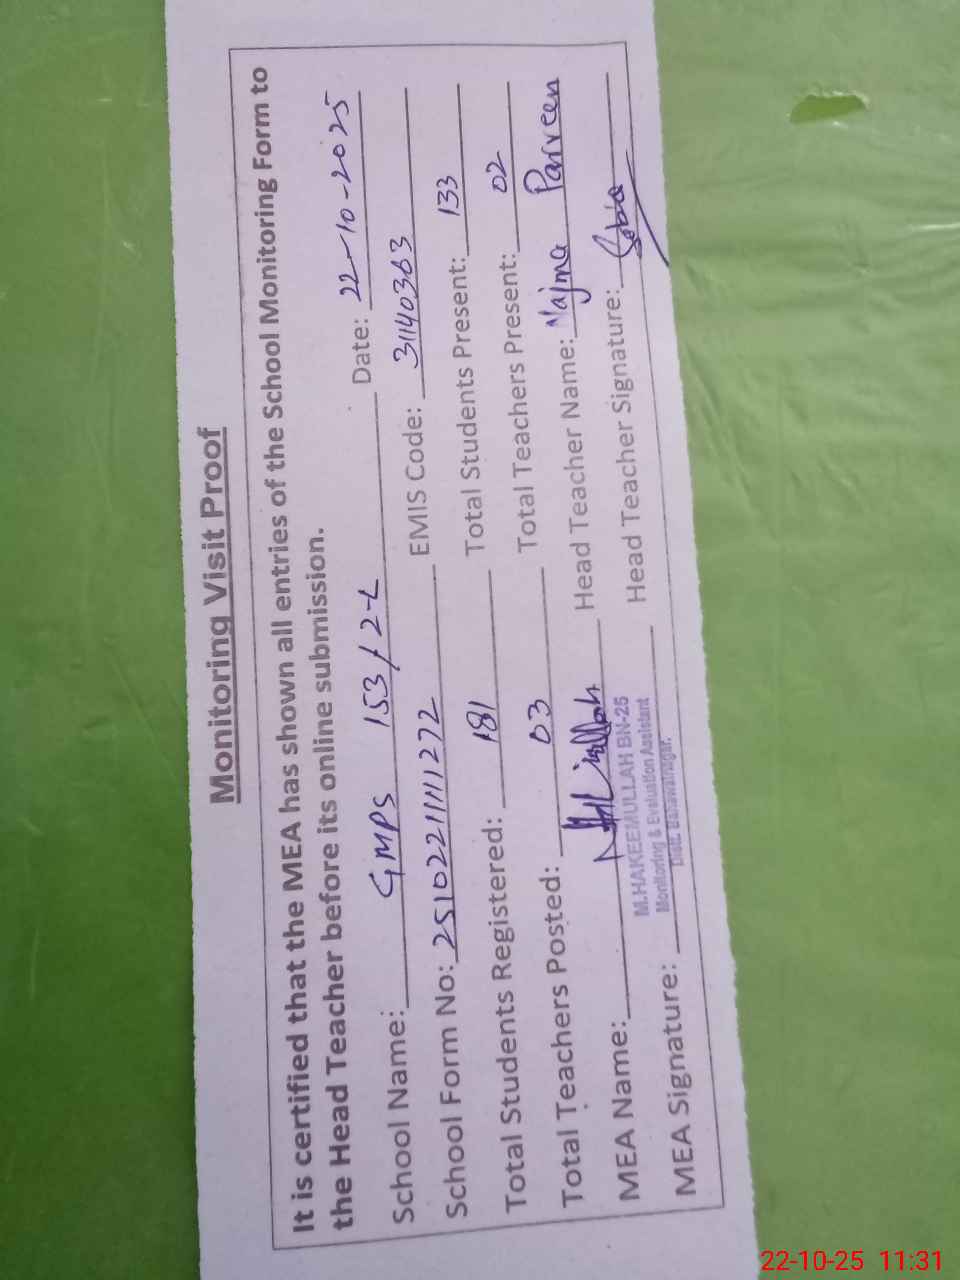 Monitoring Visit Proof
It is certified that the MEA has shown all entries of the School Monitoring Form to
the Head Teacher before its online submission.
School Name: GMPS 153/2-L Date: 22-10-2025
School Form No: 2510221111272 EMIS Code: 31140363
Total Students Registered: 181 Total Students Present: 133
Total Teachers Posted: 03 Total Teachers Present: 02
MEA Name: Head Teacher Name: Najma Parveen
M.HAKEEMULLAH BN-25
Monitoring & Evaluation Assistant
Distt. Bahawalnagar.
MEA Signature: Head Teacher Signature:
22-10-25 11:31